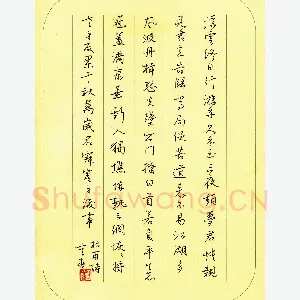 浮雲終日行游子久不至三夜頻夢君情親
見君意告歸常局促苦道來不易江湖多
風波舟楫恐失墜出門搔白首若負平生志
冠蓋滿京華斯人獨憔悴孰云網恢恢將
老身反累千秋萬歲名寂寞身後事
杜甫詩
Shufawang.CN